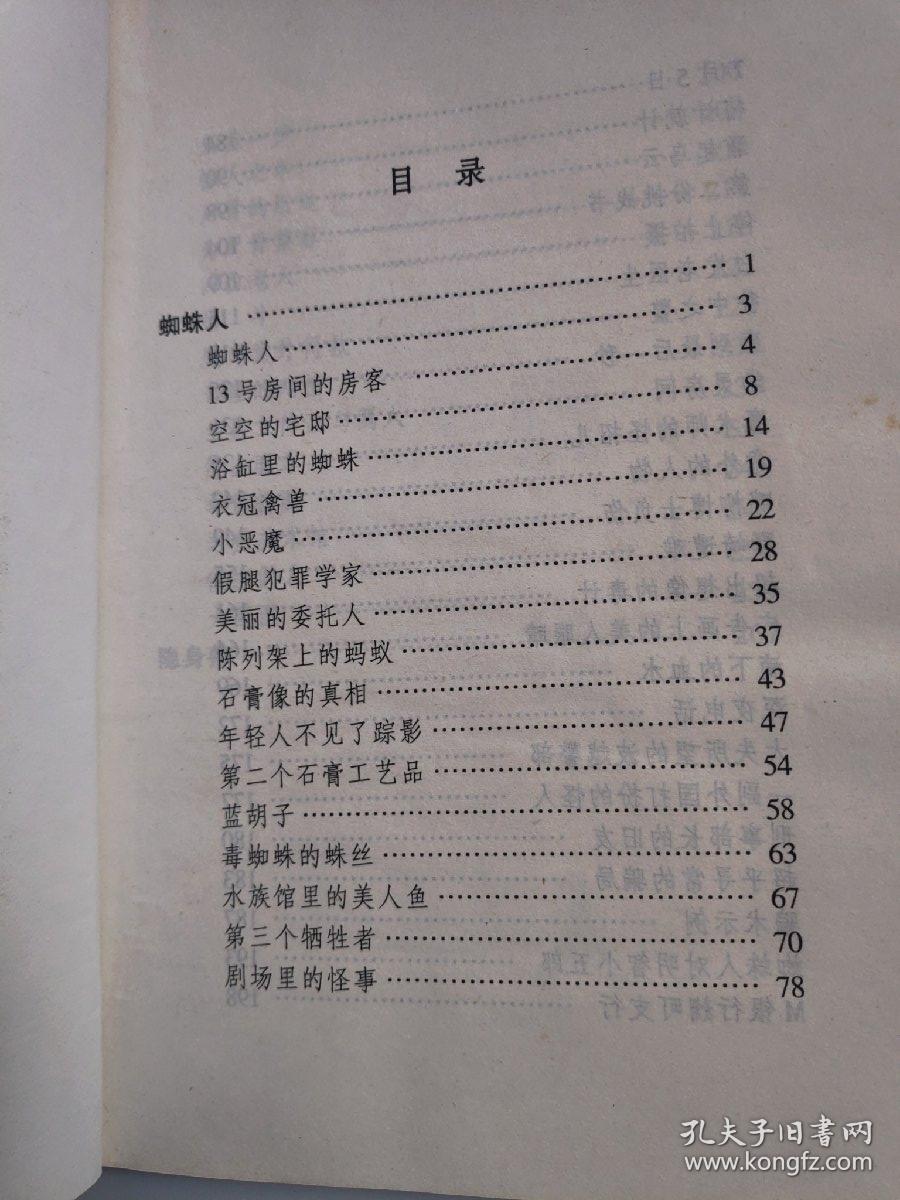 目 录
蜘蛛人 …… 1
蜘蛛人 …… 3
13号房间的房客 …… 4
空空的宅邸 …… 8
浴缸里的蜘蛛 …… 14
衣冠禽兽 …… 19
小恶魔 …… 22
假腿犯罪学家 …… 28
美丽的委托人 …… 35
陈列架上的蚂蚁 …… 37
石膏像的真相 …… 43
年轻人不见了踪影 …… 47
第二个石膏工艺品 …… 54
蓝胡子 …… 58
毒蜘蛛的蛛丝 …… 63
水族馆里的美人鱼 …… 67
第三个牺牲者 …… 70
剧场里的怪事 …… 78
孔夫子旧书网
www.kongfz.com